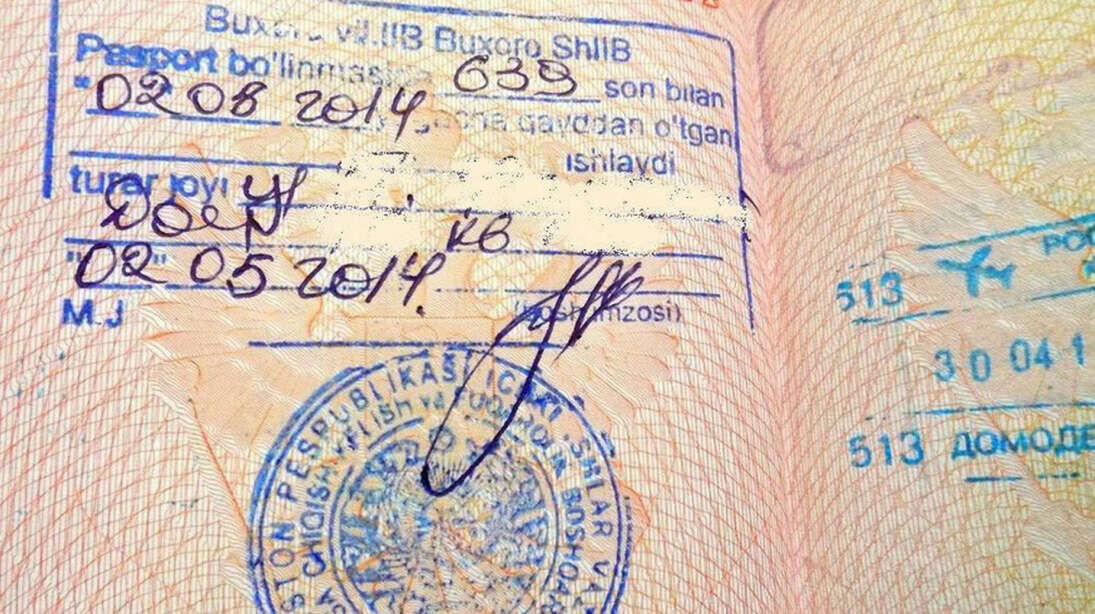 Buxoro vil.IIB Buxoro ShIIB
Pasport bo'linmasida 639 son bilan
"02 08 2014 gacha qayddan o'tgan
ishlaydi
turar joyi ул
кв
"02" 05 2014.
M.J
(boshl. imzosi)
PESPUBLIKASI ICHKI ISHLAR VA
CHIQISH VA FUQAROLIK BOSHQAR
513 РОС
30 04 1
513 ДОМОДЕ